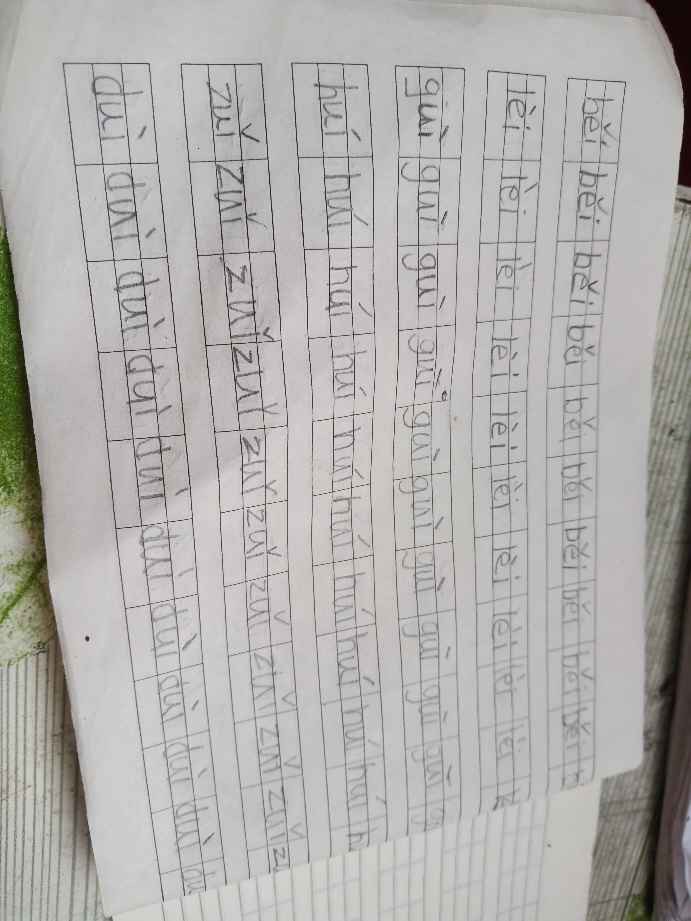 běi běi běi běi běi běi běi běi běi běi b
lèi lèi lèi lèi lèi lèi lèi lèi lèi lèi l
guì guì guì guì guì guì guì guì guì guì g
huí huí huí huí huí huí huí huí huí huí h
zuǐ zuǐ zuǐ zuǐ zuǐ zuǐ zuǐ zuǐ zuǐ zuǐ z
duì duì duì duì duì duì duì duì duì duì du